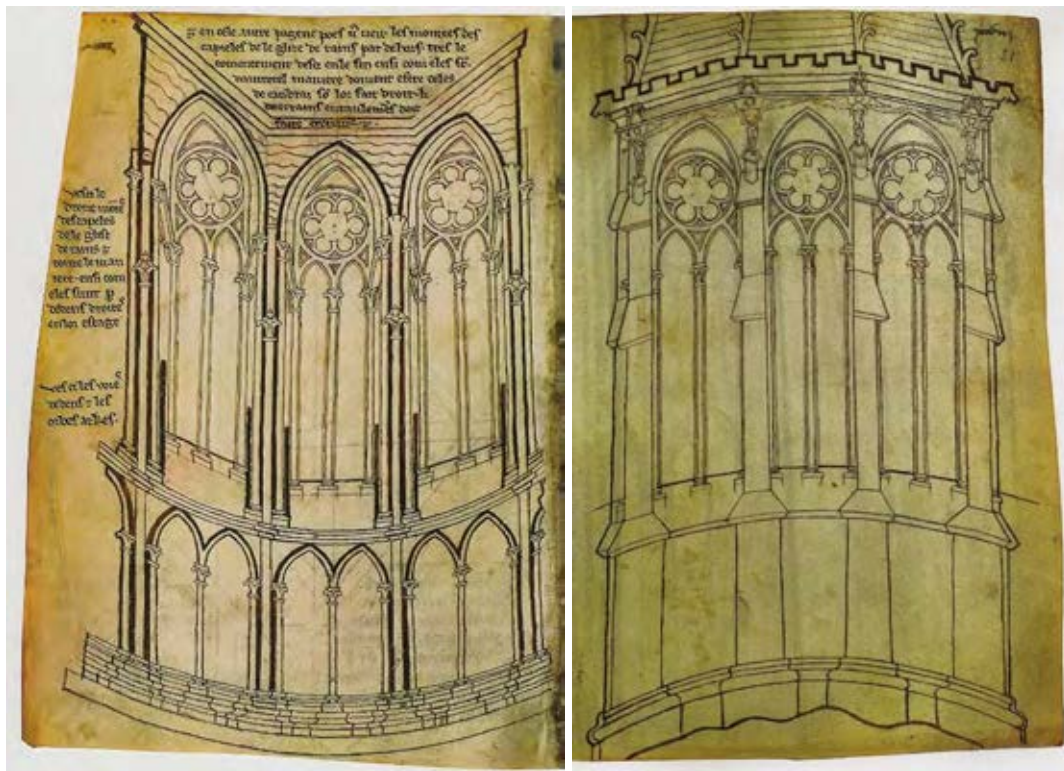 ⁊ en cele autre pagene poes veir les montees des
capieles de le glize de rains par dehors tres le
comencement desci en le fin ensi com eles sūt
dautretel maniere doivent estre celes
de canbrai lor fait droit
deerrains entaulemēs doit
faire
vesci le
droite
des capeles
de le glize
de rains ⁊
toute le man
iere ensi com
eles sunt
dedens droites
en lor estage
vesci les
dedens ⁊ les
orbes arkes
31